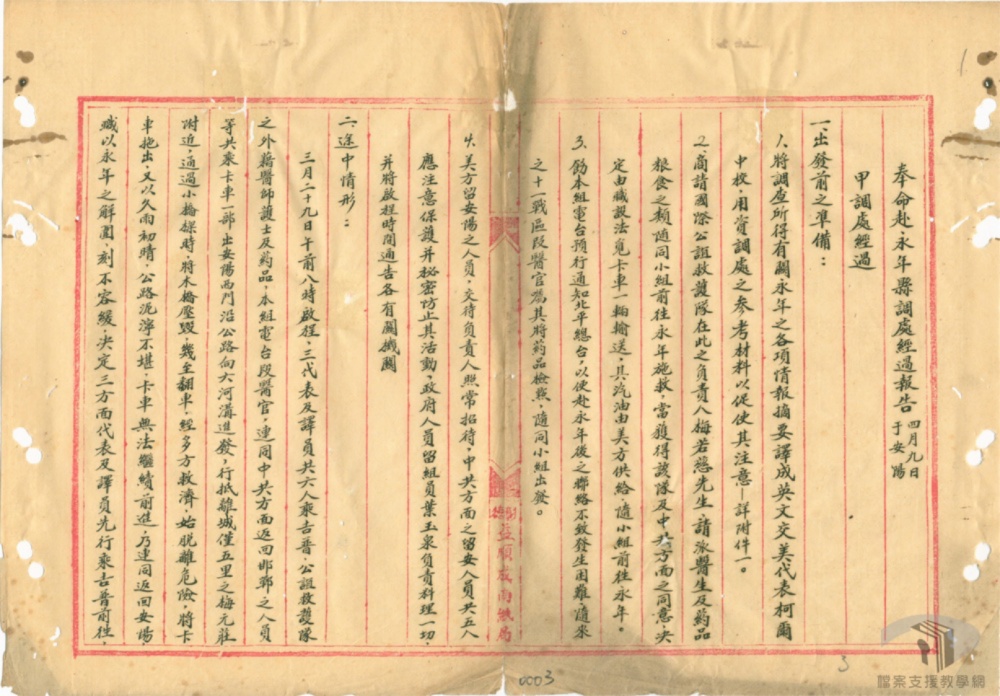 奉命赴永年縣調處經過報告 四月九日
于安陽
甲 調處經過
一 出發前之準備：
1. 將調查所得有關永年之各項情報摘要譯成英文交美代表柯爾
中校，用資調處之參考材料以促使其注意—詳附件一。
2. 商請國際公誼救護隊在此之負責人梅若慈先生，請派醫生及葯品
粮食之類隨同小組前往永年施救，當獲得該隊及中共方面之同意，決
定由職設法覓卡車一輛輸送，其汽油由美方供給，隨小組前往永年。
3. 飭本組電台預行通知北平總台，以便赴永年後之聯絡不致發生困難，隨來
之十一戰區段醫官為其將葯品檢點，隨同小組出發。
4. 美方留安陽之人員，交待負責人照常招待，中共方面之留安人員共五人
應注意保護并秘密防止其活動，政府人員留組員葉玉泉負責料理一切，
并將啟程時間通告各有關機關
二. 途中情形：
三月二十九日午前八時啟程，三代表及譯員共六人乘吉普，公誼救護隊
之外籍醫師護士及葯品，本組電台段醫官，連同中共方面返回邯鄲之人員
等共乘卡車一部出安陽西門沿公路向大河溝進發，行抵離城僅五里之梅元莊
附近，通過小橋樑時，將木橋壓毀，幾至翻車，經多方救濟，始脫離危險，將卡
車拖出，又以久雨初晴，公路泥濘不堪，卡車無法繼續前進，乃連同返回安陽，
職以永年之解圍，刻不容緩，決定三方面代表及譯員先行乘吉普前往，
益順成南紙局
0003
3
檔案支援教學網